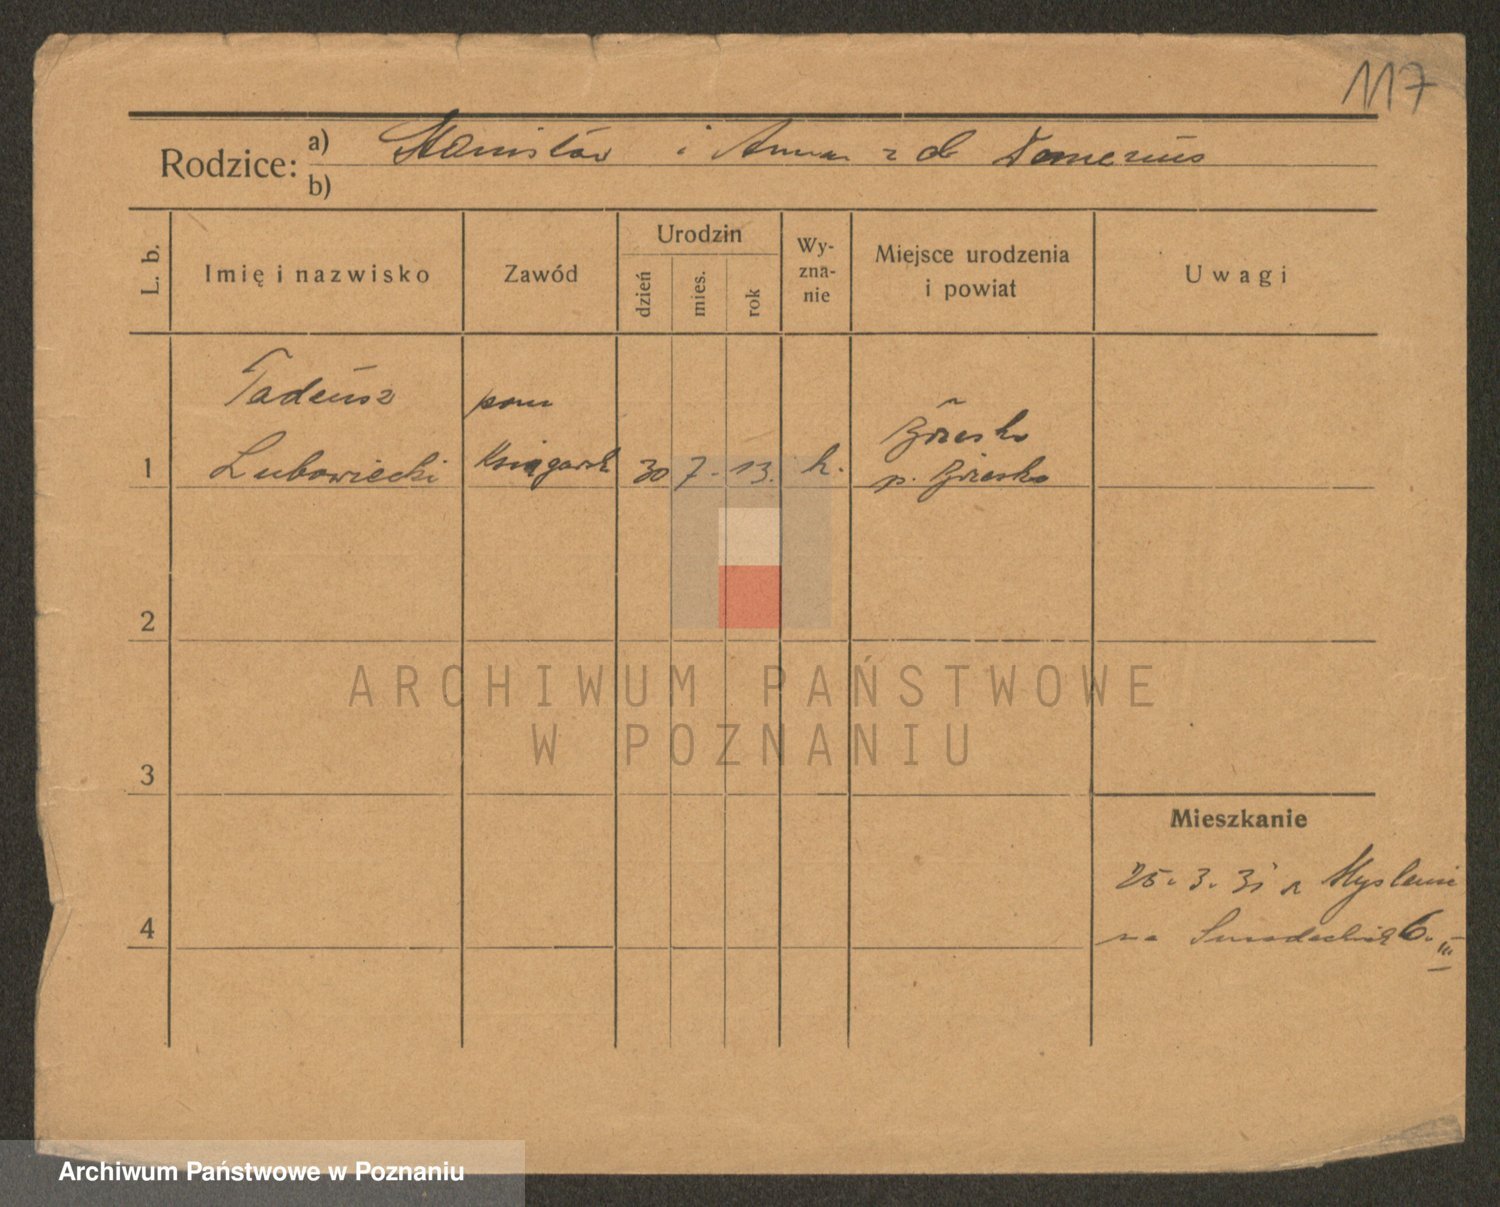 117
Rodzice: a) Stanisław i Anna z d.
b)
L. b.
Imię i nazwisko
Zawód
Urodzin
dzień
mies.
rok
Wy-
zna-
nie
Miejsce urodzenia
i powiat
Uwagi
Tadeusz
Lubowiecki
pom
Księgarsk
30
7.
13.
k.
Brzesko
p. Brzesko
1
2
3
4
ARCHIWUM PAŃSTWOWE
W POZNANIU
Mieszkanie
25. 3. 31 z
6. III
Archiwum Państwowe w Poznaniu